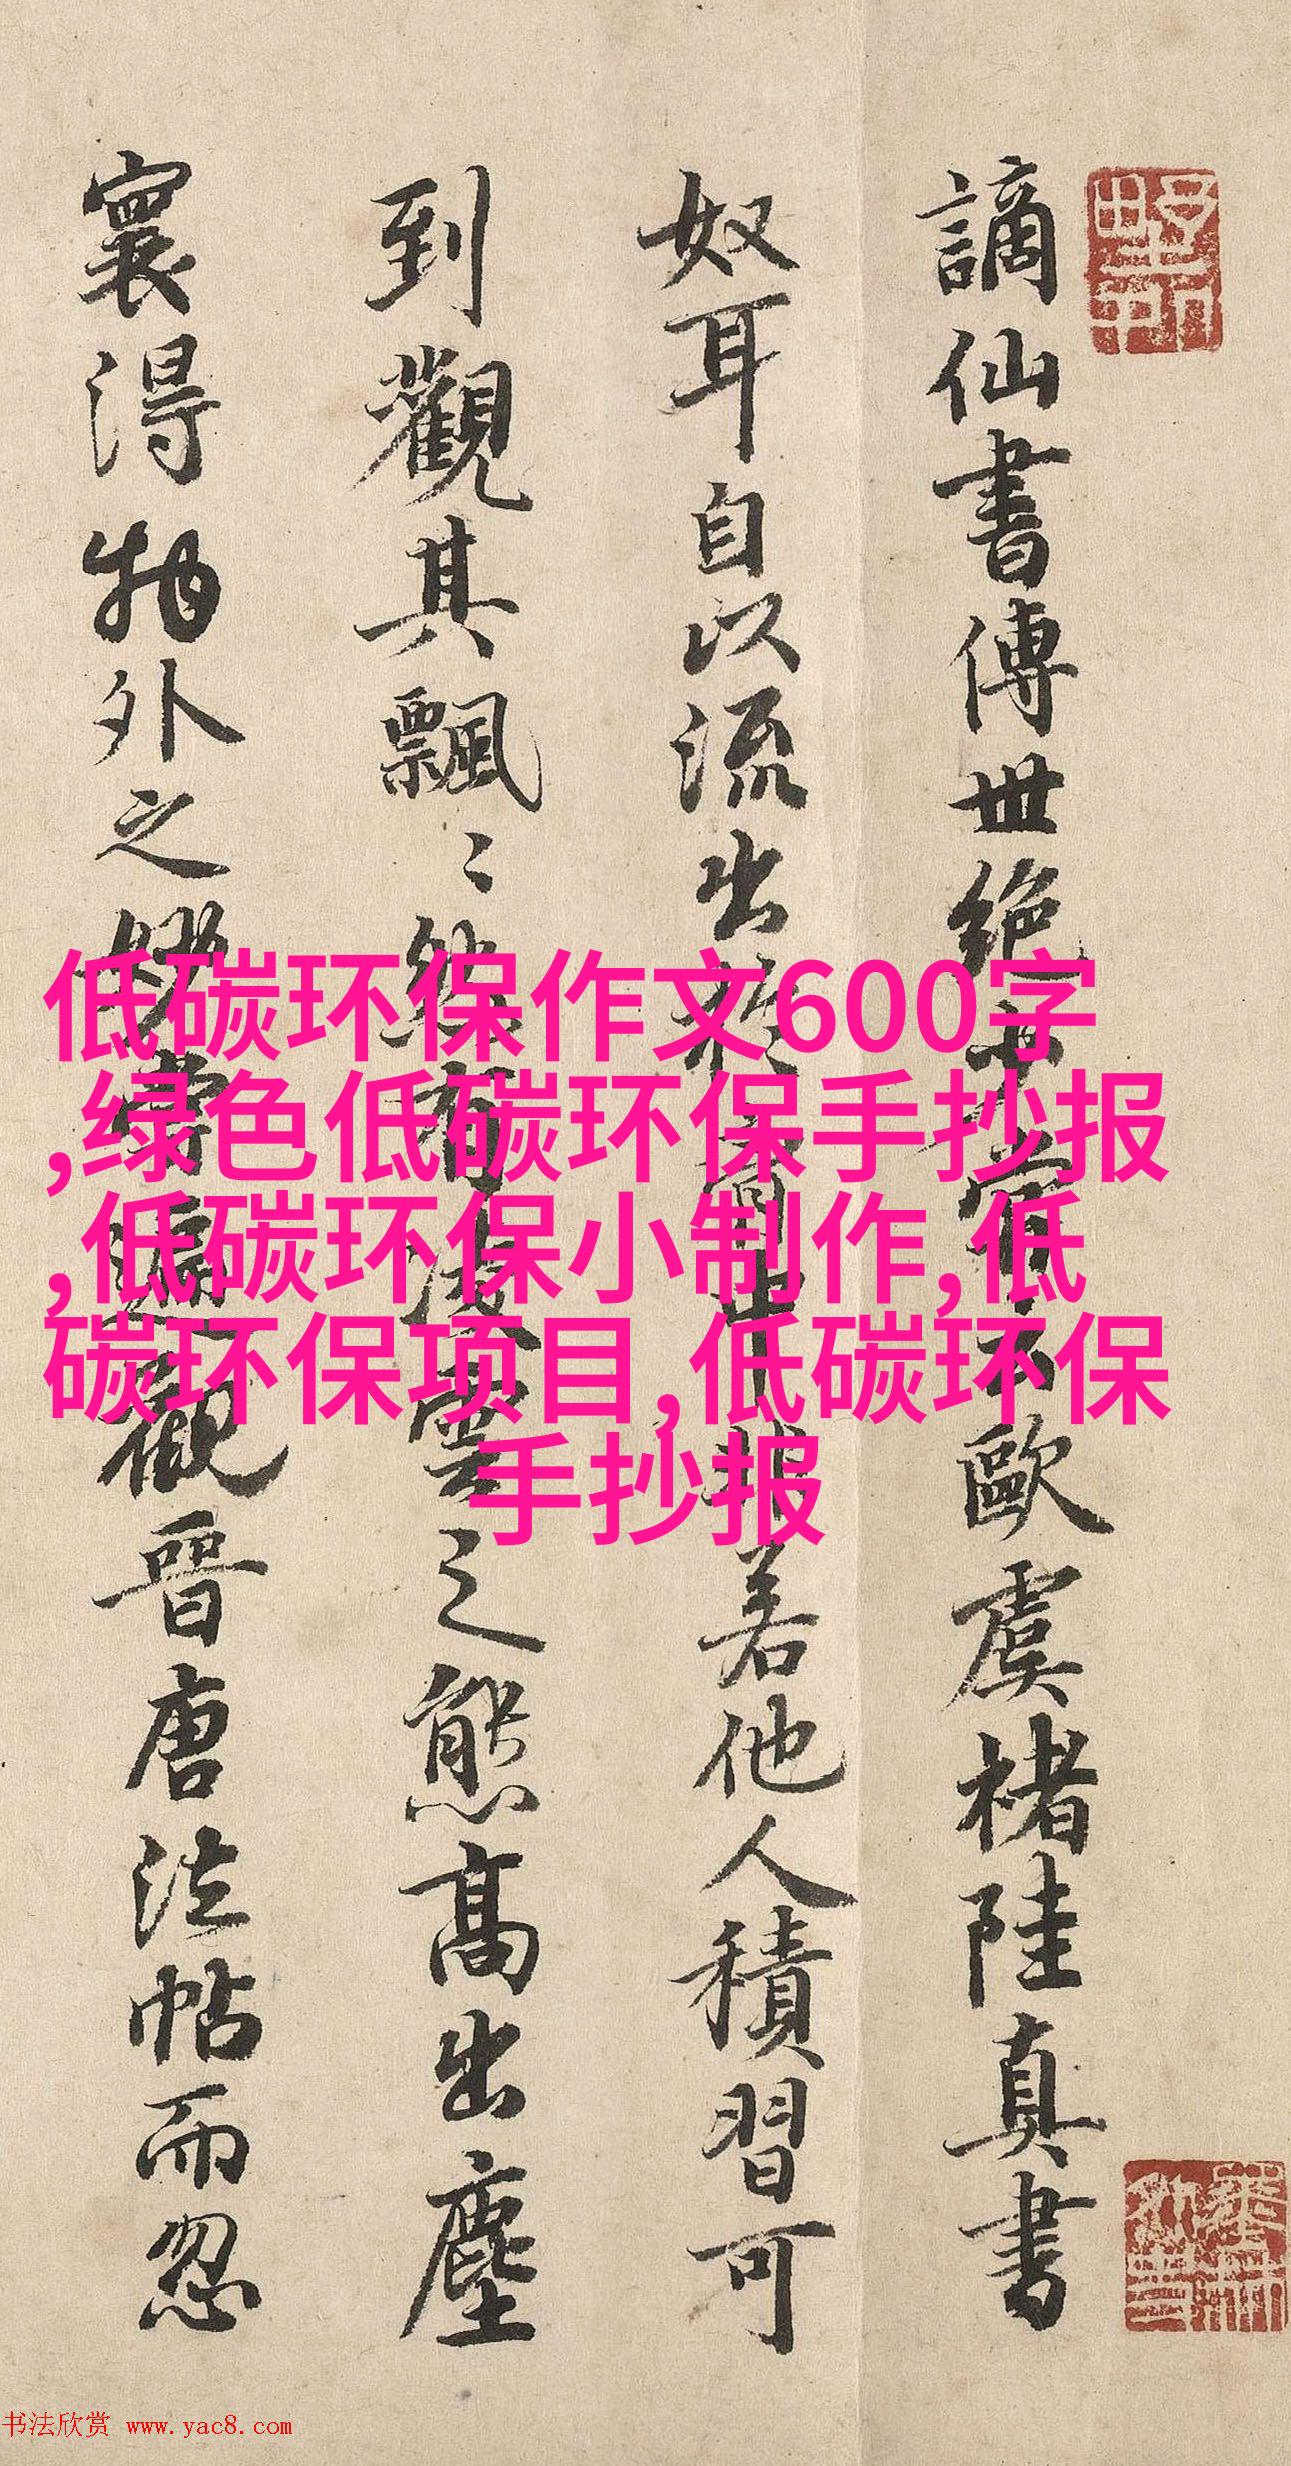 謫仙書傳世絕少嘗云歐虞褚陸真書
奴耳自以流出於胷中非若他人積習可
到觀其飄〻然有凌雲之態高出塵
寰得物外之妙嘗遍觀晉唐法帖而忽
低碳环保作文600字
,绿色低碳环保手抄报
,低碳环保小制作,低
碳环保项目,低碳环保
手抄报
书法欣赏 www.yac8.com